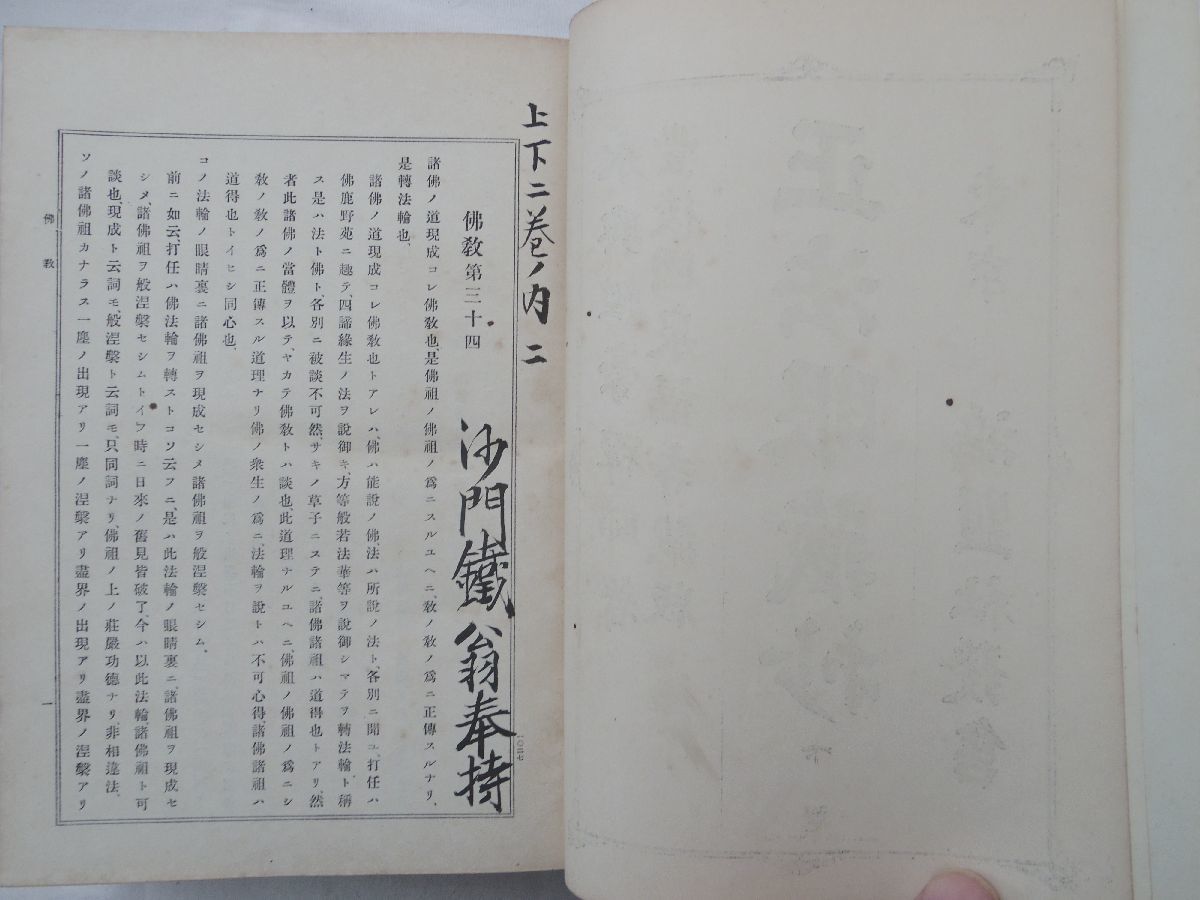 上下二巻ノ内 二
佛教第三十四
沙門鐵翁奉持
諸佛ノ道現成コレ佛教也、是佛祖ノ佛祖ノ爲ニスルユヘニ、教ノ教ノ爲ニ正傳スルナリ、
是轉法輪也、
諸佛ノ道現成コレ佛教也トアレハ、佛ハ能説ノ佛、法ハ所説ノ法ト、各別ニ聞ユ、打任ハ
佛鹿野苑ニ趣テ、四諦緣生ノ法ヲ説御キ、方等般若法華等ヲ説御シマテヲ轉法輪ト、稱
ス是ハ法ト佛ト、各別ニ被談不可然、サキノ草子ニステニ、諸佛諸祖ハ道得也トアリ、然
者此諸佛ノ當體ヲ以テ、ヤカテ佛教トハ談也、此道理ナルユヘニ、佛祖ノ佛祖ノ爲ニシ
教ノ教ノ爲ニ正傳スル道理ナリ佛ノ衆生ノ爲ニ、法輪ヲ説トハ不可心得、諸佛諸祖ハ
道得也トイヒシ同心也、
コノ法輪ノ眼睛裏ニ諸佛祖ヲ現成セシメ諸佛祖ヲ般涅槃セシム、
前ニ如云、打任ハ佛法輪ヲ轉ストコソ云フニ、是ハ此法輪ノ眼睛裏ニ、諸佛祖ヲ現成セ
シメ、諸佛祖ヲ般涅槃セシムトイフ時ニ日來ノ舊見皆破了、今ハ以此法輪、諸佛祖ト可
談也、現成ト云詞モ、般涅槃ト云詞モ、只同詞ナリ、佛祖ノ上ノ莊嚴功德ナリ、非相違法、
ソノ諸佛祖カナラス一塵ノ出現アリ一塵ノ涅槃アリ盡界ノ出現アリ盡界ノ涅槃アリ
佛教
一